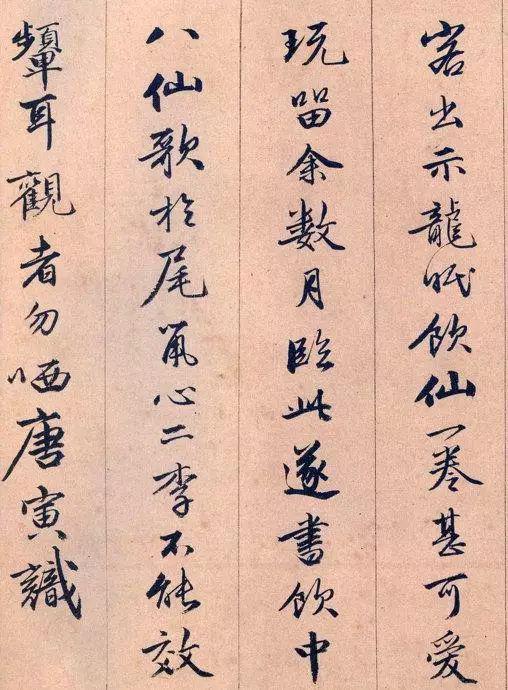 岩出示龍眠飲仙一卷甚可愛
玩留余數月臨此遂書飲中
八仙歌於尾鼠心二李不能效
顰耳觀者勿哂唐寅識